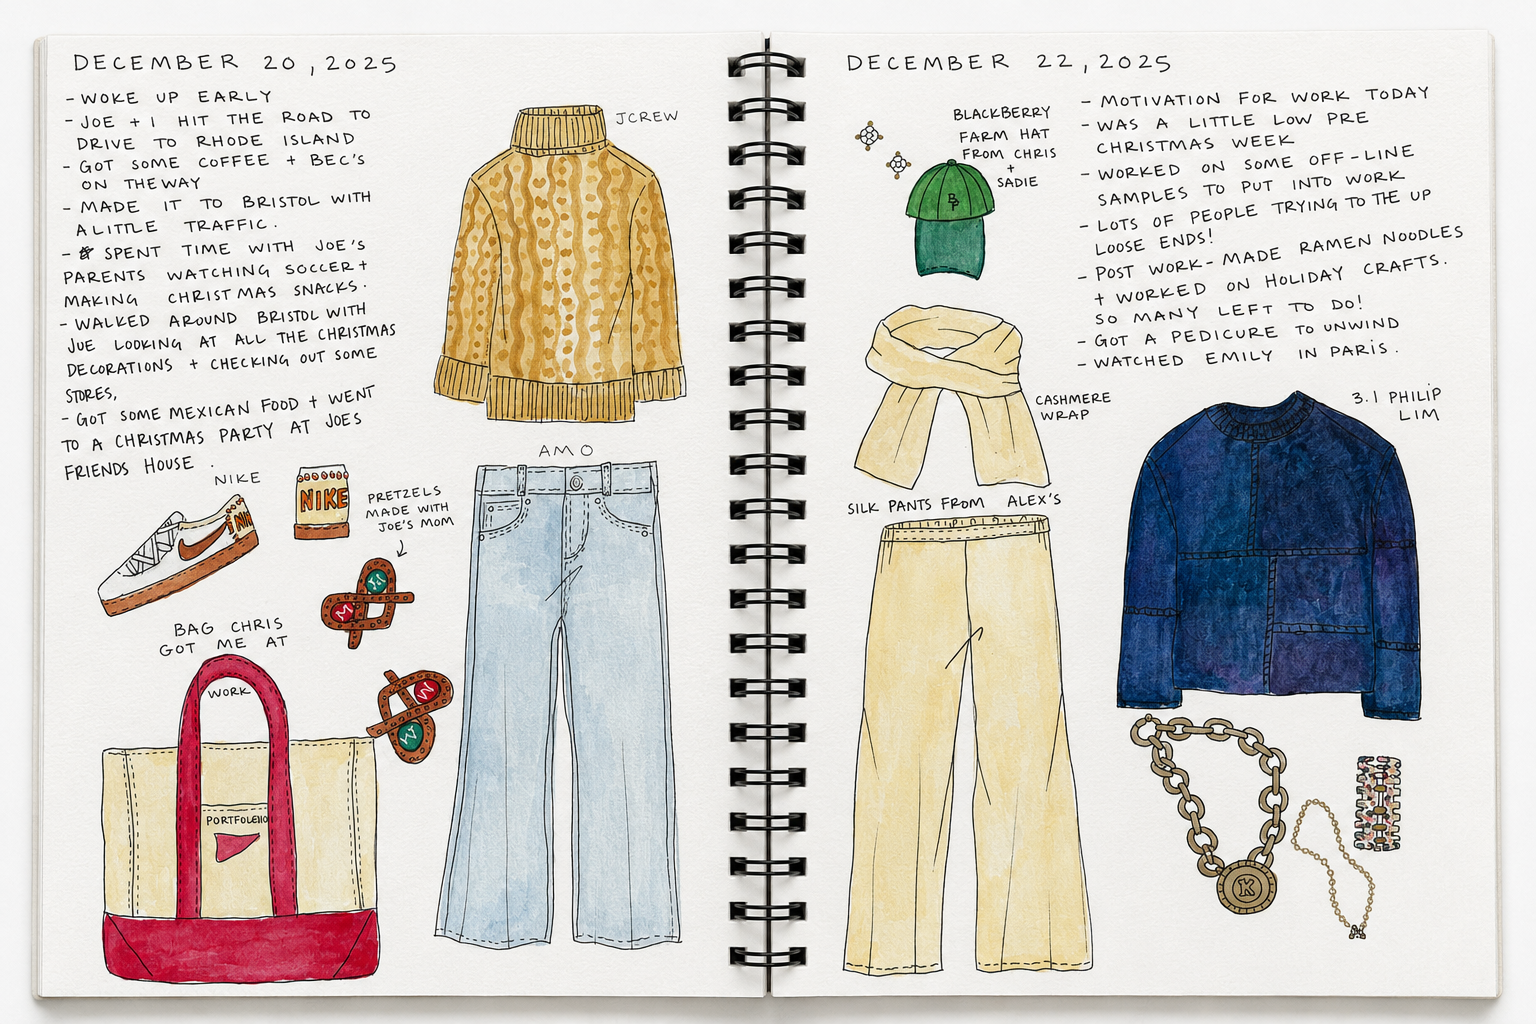 DECEMBER 20, 2025
- WOKE UP EARLY
- JOE + I HIT THE ROAD TO
DRIVE TO RHODE ISLAND
- GOT SOME COFFEE + BEC'S
ON THE WAY
- MADE IT TO BRISTOL WITH
A LITTLE TRAFFIC.
- SPENT TIME WITH JOE'S
PARENTS WATCHING SOCCER +
MAKING CHRISTMAS SNACKS.
- WALKED AROUND BRISTOL WITH
JOE LOOKING AT ALL THE CHRISTMAS
DECORATIONS + CHECKING OUT SOME
STORES,
- GOT SOME MEXICAN FOOD + WENT
TO A CHRISTMAS PARTY AT JOES
FRIENDS HOUSE .
JCREW
AMO
NIKE
NIKE
NIK
PRETZELS
MADE WITH
JOE'S MOM
M
M
W
W
BAG CHRIS
GOT ME AT
WORK
PORTFOLEIIO
DECEMBER 22, 2025
BLACKBERRY
FARM HAT
FROM CHRIS
+
SADIE
BF
- MOTIVATION FOR WORK TODAY
- WAS A LITTLE LOW PRE
CHRISTMAS WEEK
- WORKED ON SOME OFF-LINE
SAMPLES TO PUT INTO WORK
- LOTS OF PEOPLE TRYING TO TIE UP
LOOSE ENDS!
- POST WORK- MADE RAMEN NOODLES
+ WORKED ON HOLIDAY CRAFTS.
SO MANY LEFT TO DO!
- GOT A PEDICURE TO UNWIND
- WATCHED EMILY IN PARIS.
CASHMERE
WRAP
3.1 PHILIP
LIM
SILK PANTS FROM ALEX'S
K